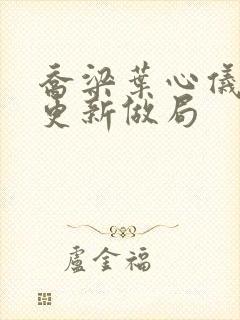 乔梁葉心儀
更新做局
盧金福